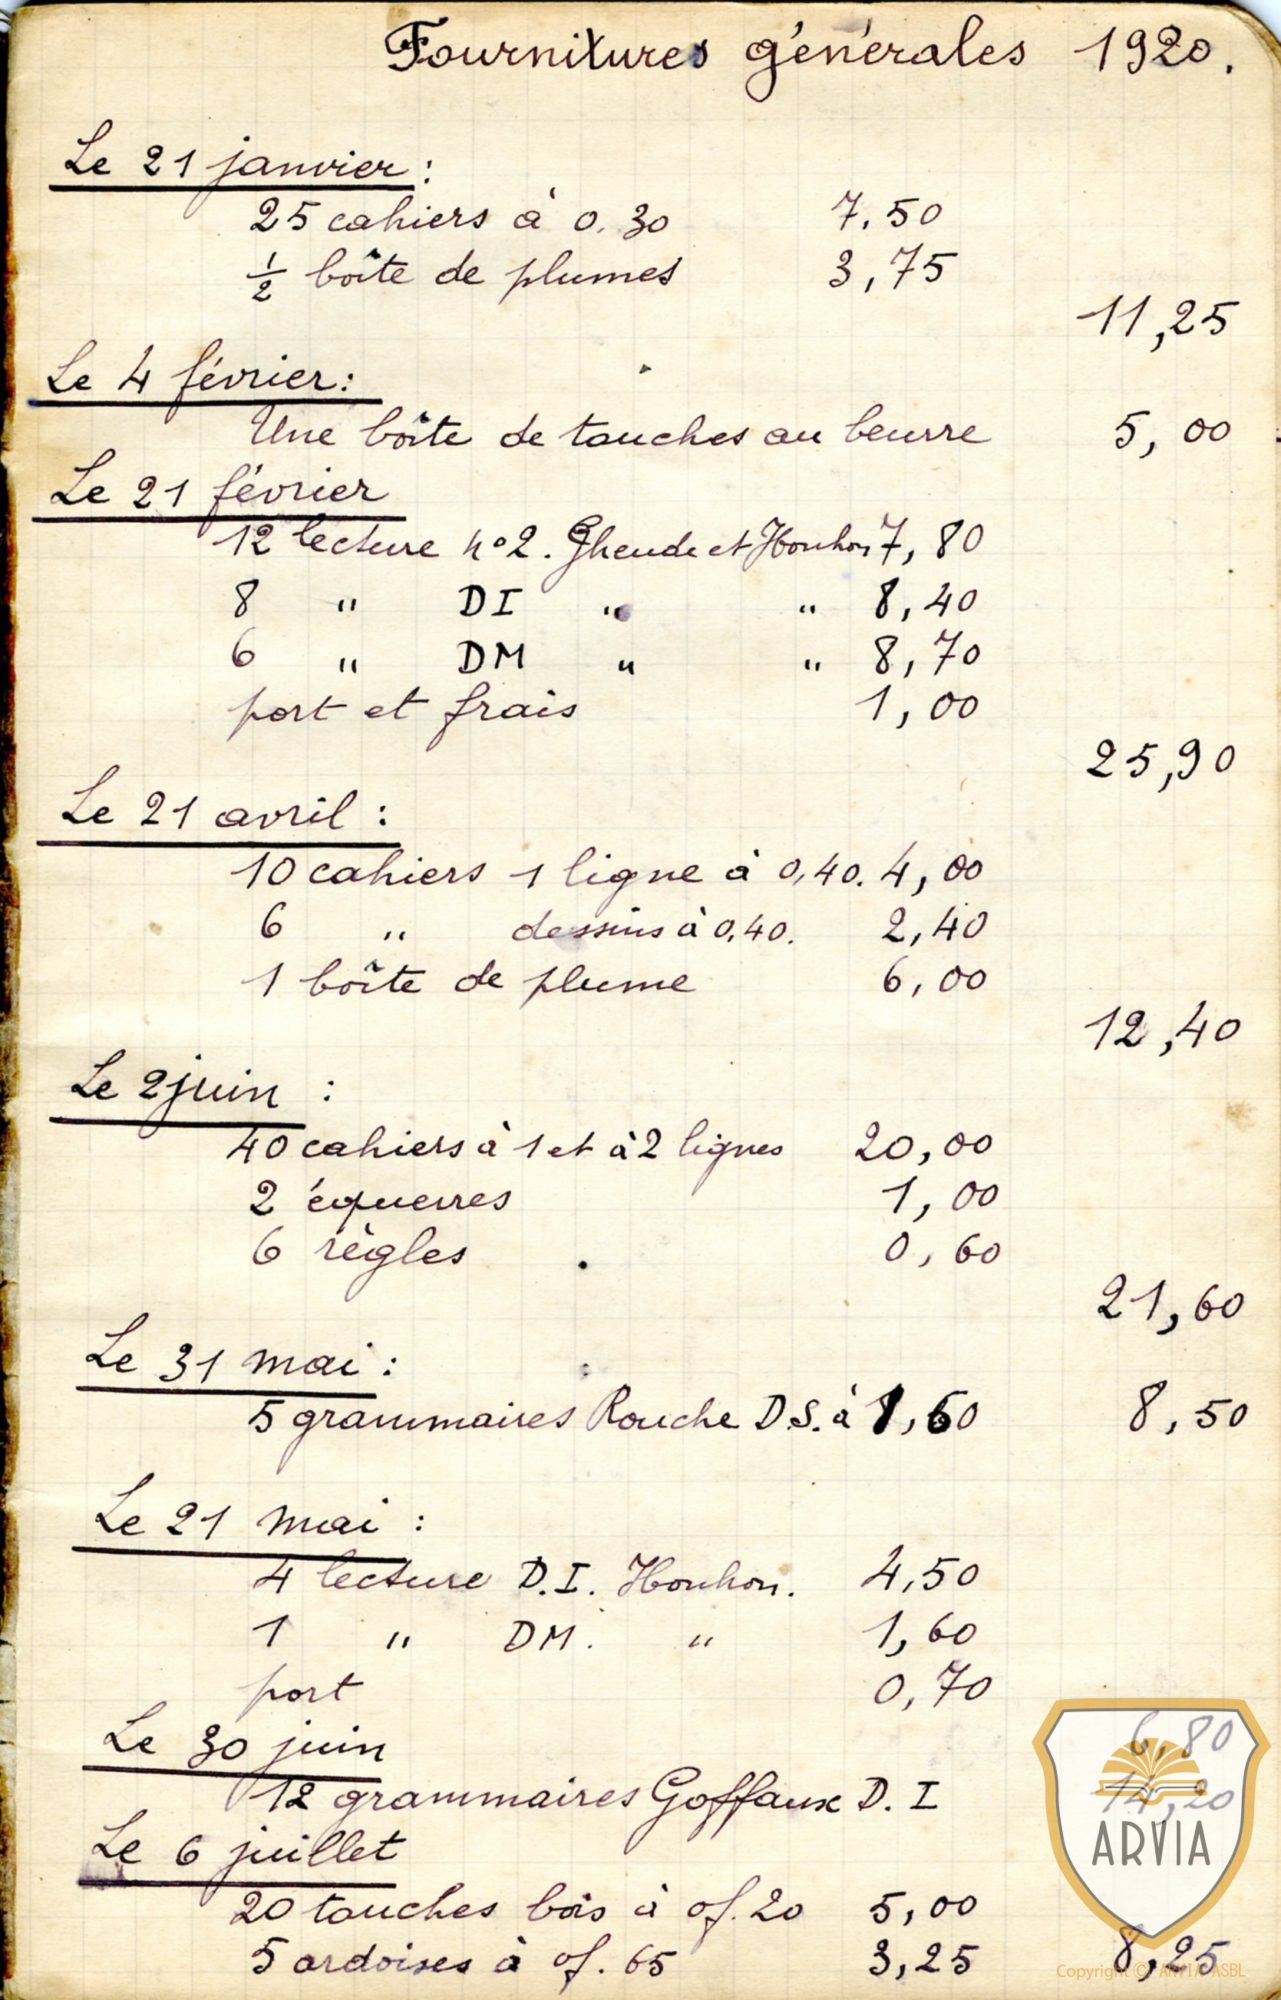 Fournitures générales 1920.
Le 21 janvier :
25 cahiers à 0.30 7.50
½ boîte de plumes 3,75
11,25
Le 4 février :
Une boîte de touches au beurre 5,00
Le 21 février
12 lecture n°2. Gheude et Houhon 7,80
8 " DI " " 8,40
6 " DM " " 8,70
port et frais 1,00
25,90
Le 21 avril :
10 cahiers 1 ligne à 0,40. 4,00
6 " dessins à 0,40. 2,40
1 boîte de plume 6,00
12,40
Le 2 juin :
40 cahiers à 1 et à 2 lignes 20,00
2 équerres 1,00
6 règles 0,60
21,60
Le 31 mai :
5 grammaires Rouche D.S. à 1,60 8,50
Le 21 mai :
4 lecture D.I. Houhon. 4,50
1 " DM. " 1,60
port 0,70
6,80
Le 30 juin
12 grammaires Goffaux D. I 14,20
Le 6 juillet
20 touches bois à of.20 5,00
5 ardoises à of.65 3,25 8,25
ARVIA
Copyright © ARVIA ASBL